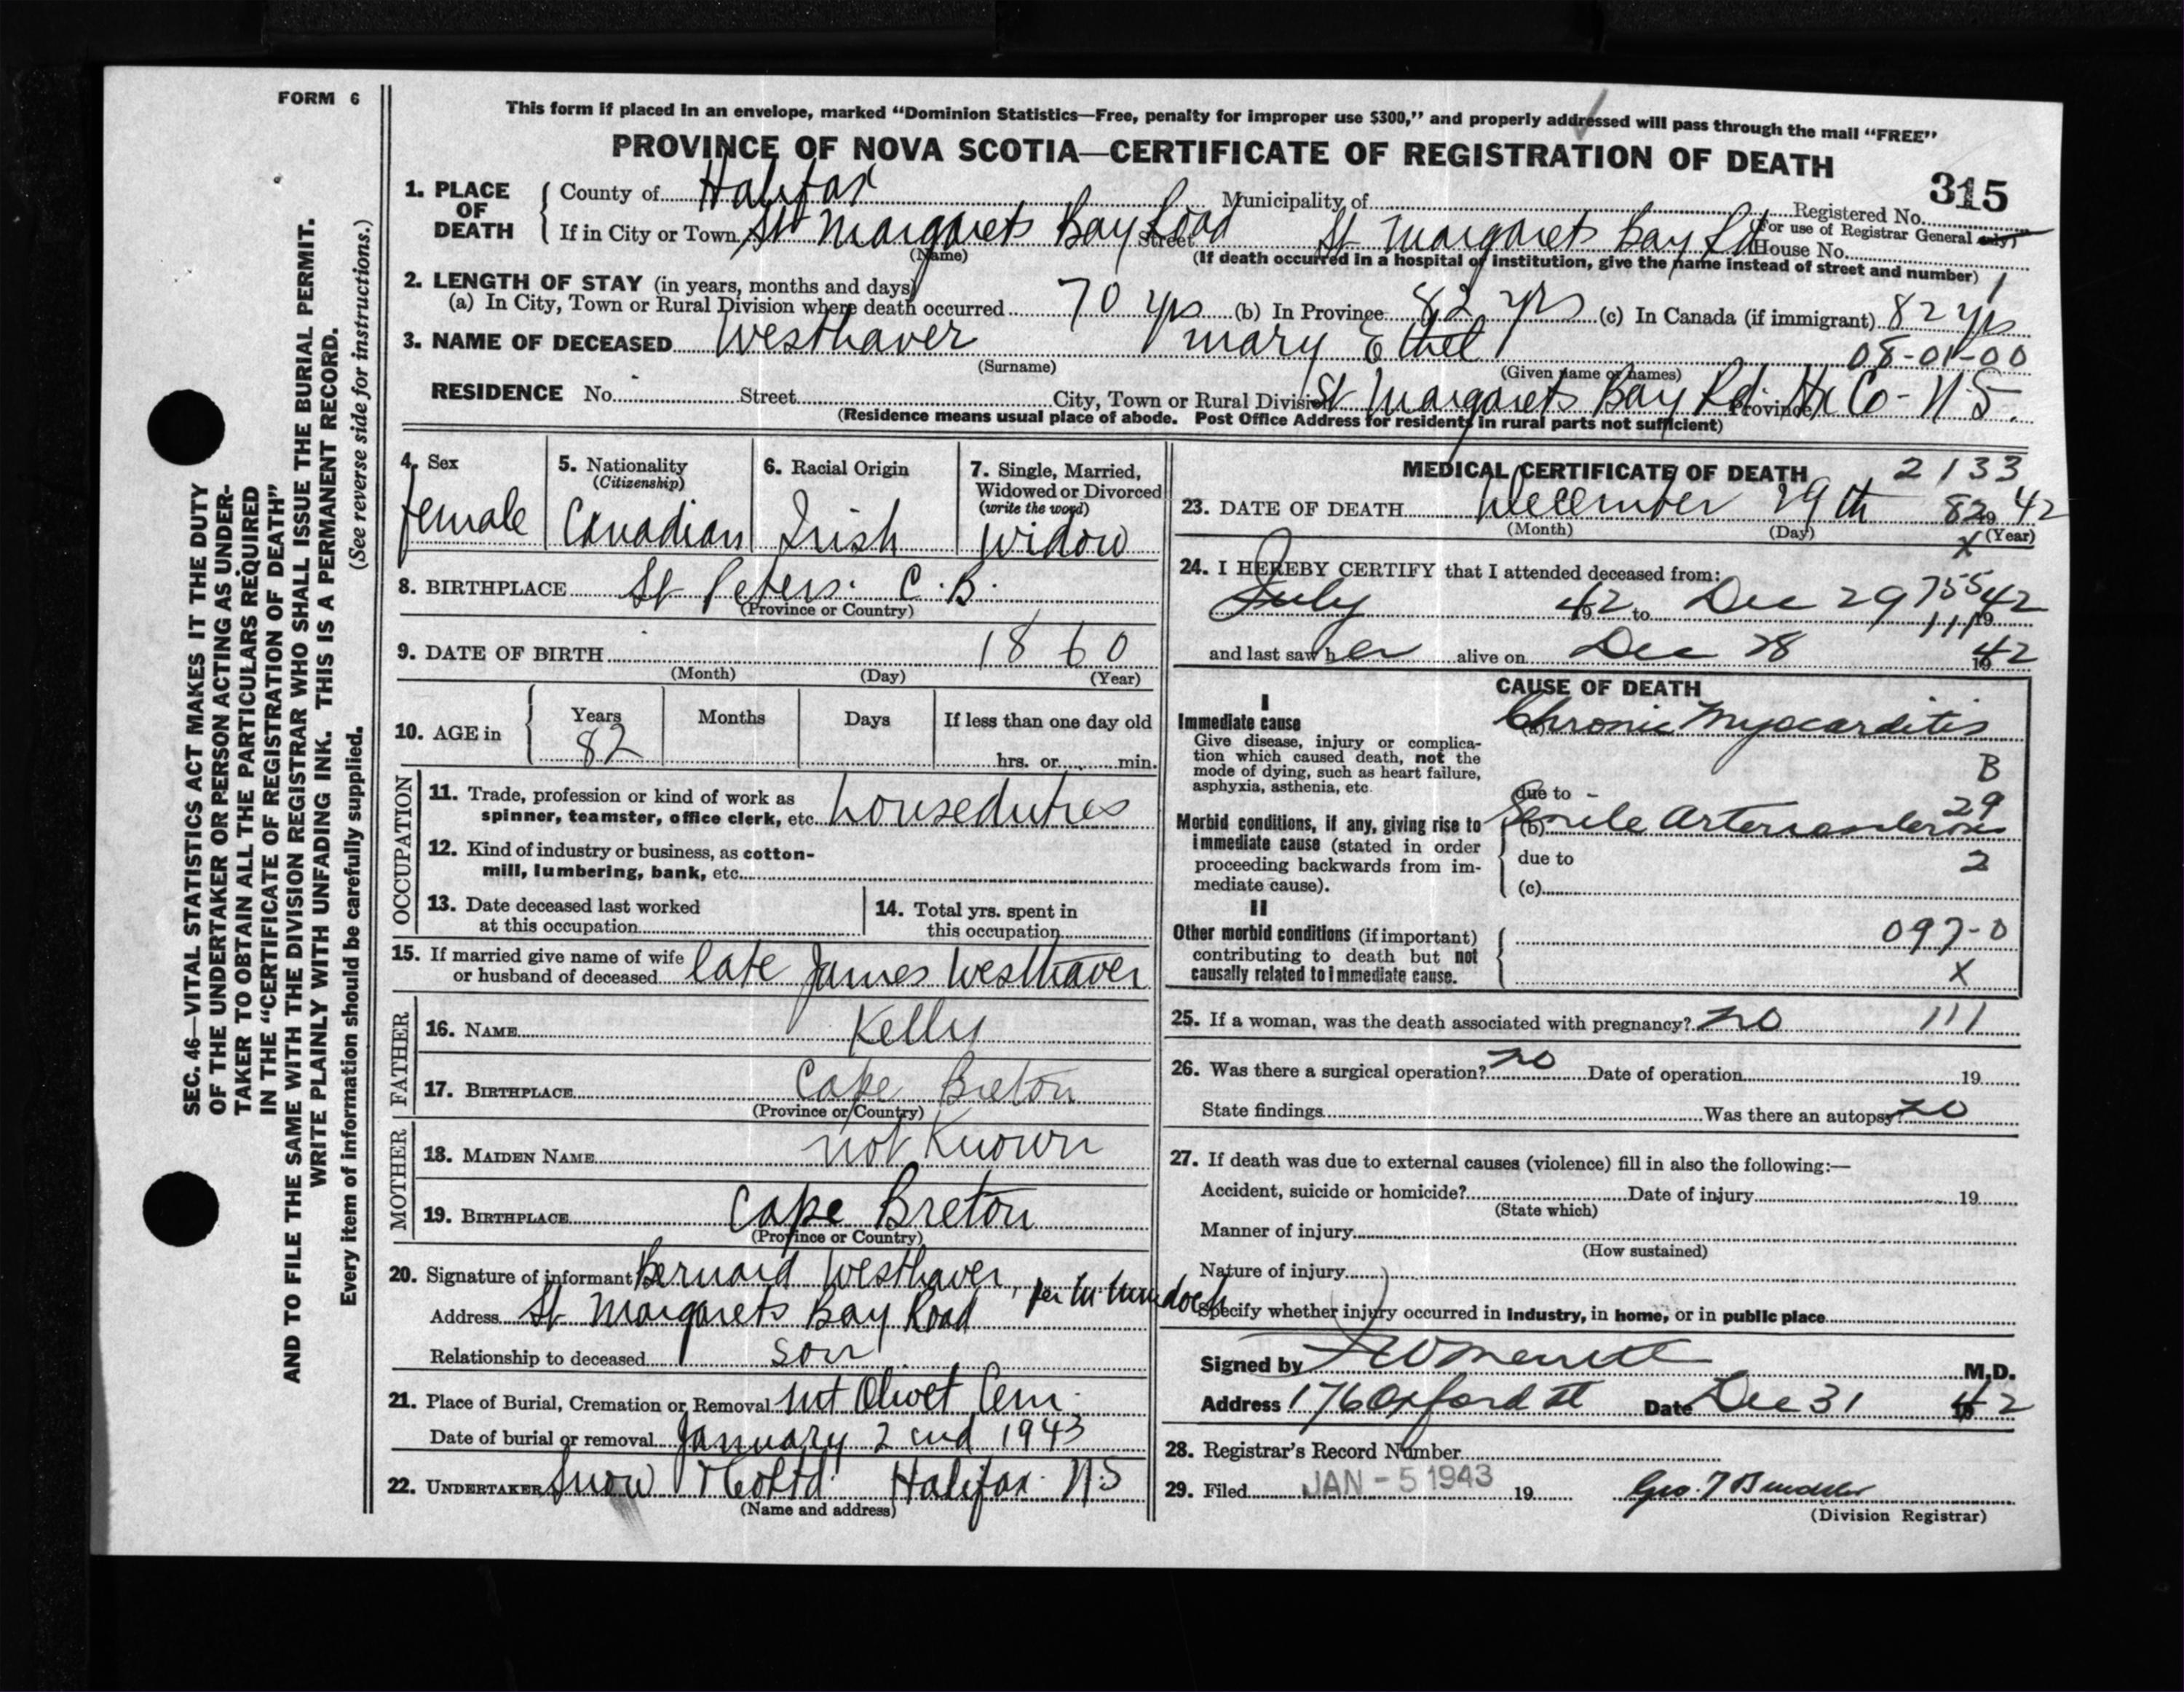 FORM 6
This form if placed in an envelope, marked “Dominion Statistics—Free, penalty for improper use $300,” and properly addressed will pass through the mail “FREE”
PROVINCE OF NOVA SCOTIA—CERTIFICATE OF REGISTRATION OF DEATH
315
1. PLACE OF DEATH
County of Halifax Municipality of Registered No.
(For use of Registrar General only)
If in City or Town St Margarets Bay Road Street St Margarets Bay Rd House No.
(Name) (If death occurred in a hospital or institution, give the name instead of street and number) 1
2. LENGTH OF STAY (in years, months and days)
(a) In City, Town or Rural Division where death occurred 70 yrs (b) In Province 82 yrs (c) In Canada (if immigrant) 82 yrs
3. NAME OF DECEASED Westhaver Mary Ethel 08-01-00
(Surname) (Given name or names)
RESIDENCE No. Street City, Town or Rural Division St Margarets Bay Rd. Hx Co - N.S. Province
(Residence means usual place of abode. Post Office Address for residents in rural parts not sufficient)
4. Sex
female
5. Nationality
(Citizenship)
Canadian
6. Racial Origin
Irish
7. Single, Married,
Widowed or Divorced
(write the word)
widow
8. BIRTHPLACE St Peters. C.B.
(Province or Country)
9. DATE OF BIRTH 1860
(Month) (Day) (Year)
10. AGE in
Years Months Days If less than one day old
82 hrs. or min.
OCCUPATION
11. Trade, profession or kind of work as
spinner, teamster, office clerk, etc. houseduties
12. Kind of industry or business, as cotton-
mill, lumbering, bank, etc.
13. Date deceased last worked
at this occupation
14. Total yrs. spent in
this occupation
15. If married give name of wife
or husband of deceased late James Westhaver
FATHER
16. NAME Kelly
17. BIRTHPLACE Cape Breton
(Province or Country)
MOTHER
18. MAIDEN NAME not Known
19. BIRTHPLACE Cape Breton
(Province or Country)
20. Signature of informant Bernard Westhaver, per
Address St Margarets Bay Road
Relationship to deceased son
21. Place of Burial, Cremation or Removal Mt Olivet Cem.
Date of burial or removal January 2nd 1943
22. UNDERTAKER Snow & Co Ltd. Halifax. N.S
(Name and address)
MEDICAL CERTIFICATE OF DEATH 2133
23. DATE OF DEATH December 29th 82 19 42
(Month) (Day) X (Year)
24. I HEREBY CERTIFY that I attended deceased from:
July 19 42 to Dec 29 755 19 42
111
and last saw her alive on Dec 28 19 42
CAUSE OF DEATH
I
Immediate cause
Give disease, injury or complica-
tion which caused death, not the
mode of dying, such as heart failure,
asphyxia, asthenia, etc.
(a) Chronic Myocarditis
B
due to -
29
Morbid conditions, if any, giving rise to
immediate cause (stated in order
proceeding backwards from im-
mediate cause).
(b) Senile Arteriosclerosis
due to 2
(c)
II
Other morbid conditions (if important)
contributing to death but not
causally related to immediate cause.
097-0
X
25. If a woman, was the death associated with pregnancy? no 111
26. Was there a surgical operation? no Date of operation 19
State findings Was there an autopsy? no
27. If death was due to external causes (violence) fill in also the following:—
Accident, suicide or homicide? Date of injury 19
(State which)
Manner of injury
(How sustained)
Nature of injury
Specify whether injury occurred in industry, in home, or in public place
Signed by M.D.
Address 176 Oxford St Date Dec 31 19 42
28. Registrar's Record Number
29. Filed JAN - 5 1943 19
(Division Registrar)
SEC. 46—VITAL STATISTICS ACT MAKES IT THE DUTY
OF THE UNDERTAKER OR PERSON ACTING AS UNDER-
TAKER TO OBTAIN ALL THE PARTICULARS REQUIRED
IN THE “CERTIFICATE OF REGISTRATION OF DEATH”
AND TO FILE THE SAME WITH THE DIVISION REGISTRAR WHO SHALL ISSUE THE BURIAL PERMIT.
WRITE PLAINLY WITH UNFADING INK. THIS IS A PERMANENT RECORD.
Every item of information should be carefully supplied. (See reverse side for instructions.)